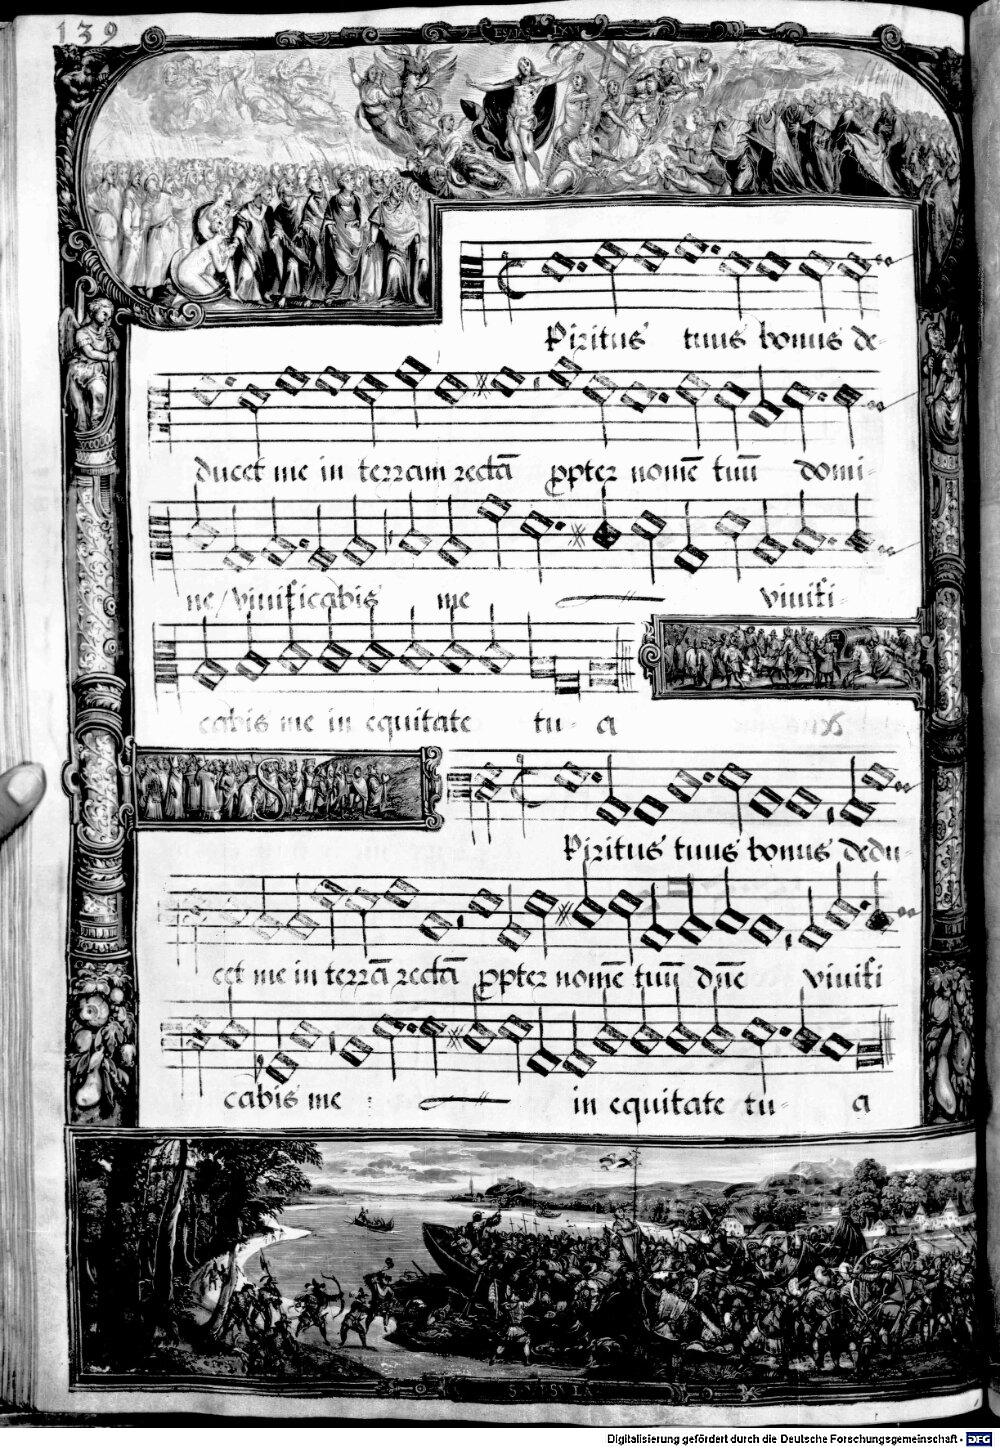 139
ESAIAS LXVI
Piritus tuus bonus de-
ducet me in terram rectā ꝓpter nomē tuū domi-
ne/ viuificabis me viuifi-
cabis me in equitate tu- a
S
Piritus tuus bonus dedu-
cet me in terrā rectā ꝓpter nomē tuū dn̄e viuifi
cabis me : in equitate tu- a
S. VRSVLA
Digitalisierung gefördert durch die Deutsche Forschungsgemeinschaft - DFG